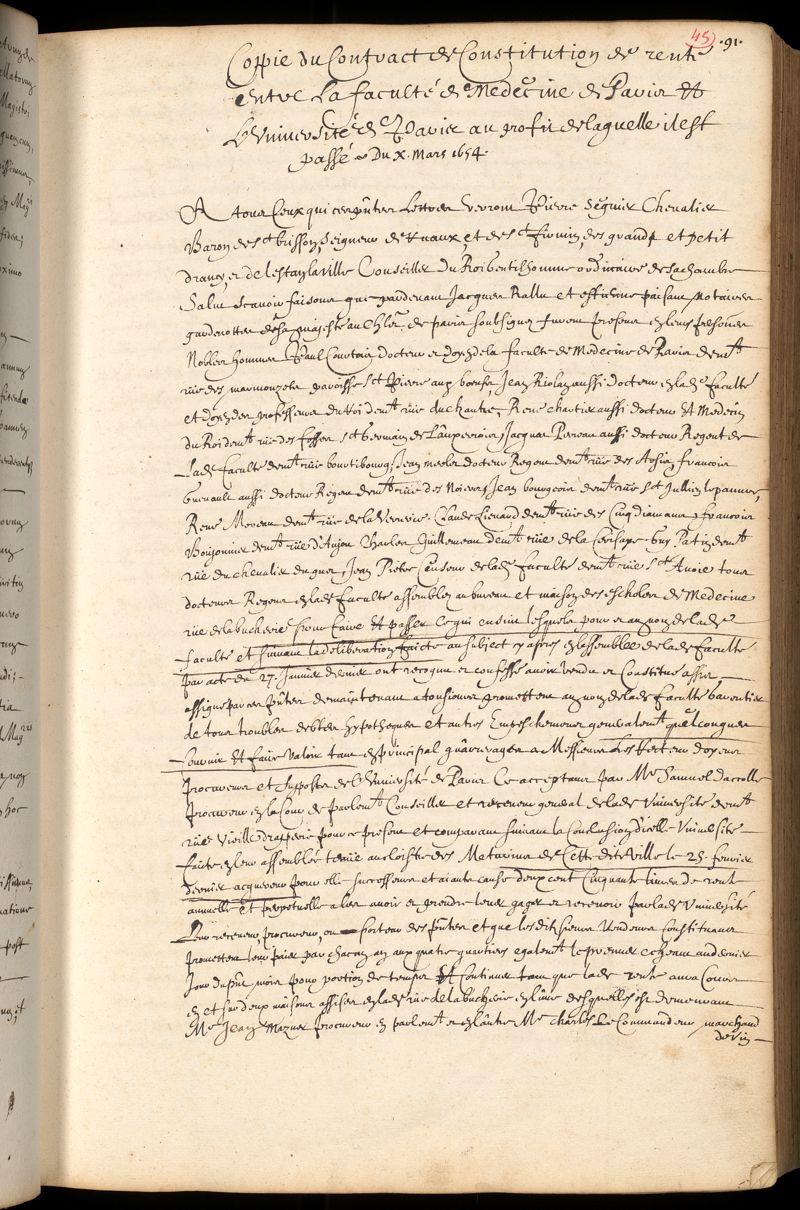 45) .91.
Coppie du Contract de Constitution de rente
entre La faculté de Medecine de Paris Et
L'Université de Paris au profit de laquelle il est
passé Du X. Mars 1654.
A tous Ceux qui ces pñtes Lettres verront Pierre Seguier Chevalier
Baron de St brisson, Seigneur de Ruaux et de St firmin, des grand et petit
drancy, et de lestang la ville Conseiller du Roi Gentilhomme ordinaire de sa chambre
Salut scavoir faisons que pardevant Jacques Rallu et estienne paisant Notaires
gardenottes de sa majesté au Chlet de paris soubsignez furent presens en leurs personnes
Nobles hommes Paul Courtois docteur et doyen de la faculté de Medecine de Paris demt
rue des marmouzets paroisse St Pierre aux boeufs, Jean Riolan aussi docteur en lade faculté
et doyen des professeurs du Roi demt rüe du chantre, René chartier aussi docteur Et Medecin
du Roi demt rüe des fossez St Germain de l'auxerrois, Jacques Perreau aussi docteur Regent de
Lade faculté demt rüe bourtibourg, Jean merlet docteur Regent demt rüe des francois
Guenault aussi docteur Regent demt rüe des Noiers, Jean bourgeois demt rüe St Jullien le pauvre,
René Moreau demt rüe de la Verrerie, Claude Lienard demt rüe des Cinq diamans, francois
Boujonnier demt rüe d'Anjou Charles Guillemeau demt rüe de la Cerisaye Guy Patin demt
rüe du chevalier du guet, Jean Pietre Censeur de lade faculté demt rüe Ste Avoie tous
docteurs Regens en lade faculté assemblez au bureau et maison des escholes de Medecine
rüe de la bucherie pour faire Et passer ce qui ensuit lesquels pour et au nom de lade
faculté et suivant la deliberation faicte au subject cy apres en lassemblée de lade faculté
par acte du 27. Janvier dernier ont recogneu et confessé avoir vendu et Constitué assis,
assigné par ces pñtes des maintenant a tousiours promettent au nom de lade faculté Garentir
de tous troubles debtes hypotheques et autres Empeschemens generalemt quelconques
fournir Et faire Valoir tant en principal qu'arrerages a Messieurs Les Recteur doyens
Procureurs et supposts de L'Université de Paris Ce acceptans par Me Samuel dacolle
Procureur en la Cour de parlemt Conseiller et receveur general de lade Université demt
rüe Vieille drapperie pour ce present et comparant suivant la Conclusion d'icelle Université
faite en leur assemblée tenüe au cloistre des Maturins de Cette dite Ville le 25. fevrier
dernier acquereur pour elle successeurs et aiants cause deux cent Cinquante livres de rente
annuelle et perpetuelle a les avoir et prendre lever gager et recevoir par lade Université
Leur receveur procureur, ou porteur des pñtes et que les dits sieurs Vendeurs Constituans
promettent leur païer par chacun an aux quatre quartiers egalemt le premier escheant au dernier
Jour du pñt mois pour portion de temps Et Continuer tant que lade rente aura Cours
en et sur deux maisons assises en lade rüe de la bucherie en lüne desquelles est demeurant
Me Jean Mazuet procureur en parlemt et en lautre Me charles Le Commandeur marchand
de Vin